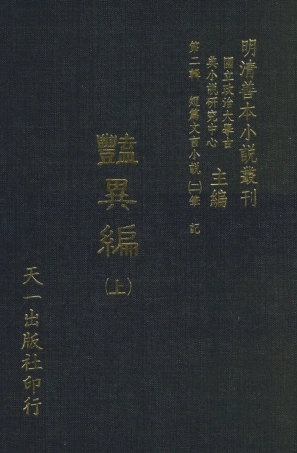 明清善本小説叢刊
國立政治大學古
典小說研究中心
主編
第二輯 短篇文言小說(二)筆記
豔異編
(上)
天一出版社印行